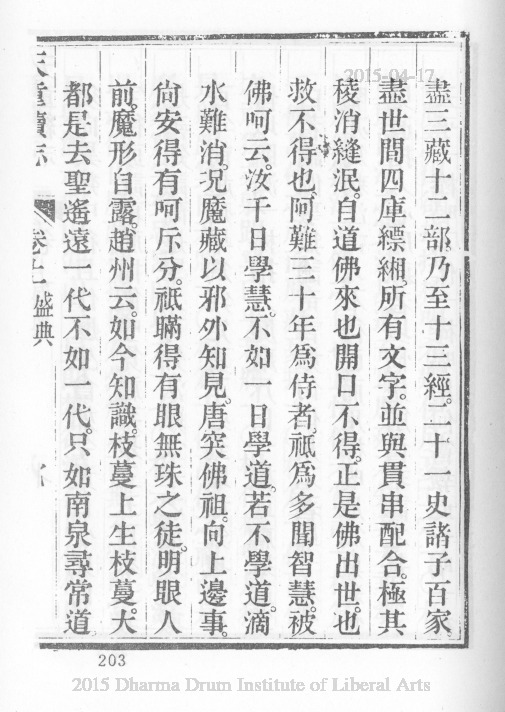 2015-04-17
盡三藏十二部乃至十三經。二十一史諸子百家
盡世間四庫縹緗。所有文字。並與貫串配合。極其
稜消縫泯。自道佛來也開口不得。正是佛出世。也
救不得也。阿難三十年爲侍者。祗爲多聞智慧。被
佛呵云。汝千日學慧。不如一日學道。若不學道。滴
水難消。况魔藏以邪外知見。唐突佛祖。向上邊事。
尙安得有呵斥分。祇瞞得有眼無珠之徒。明眼人
前。魔形自露。趙州云。如今知識。枝蔓上生枝蔓。大
都是去聖遙遠一代不如一代。只如南泉尋常道
天童寶志 卷之上 盛典
203
2015 Dharma Drum Institute of Liberal Arts